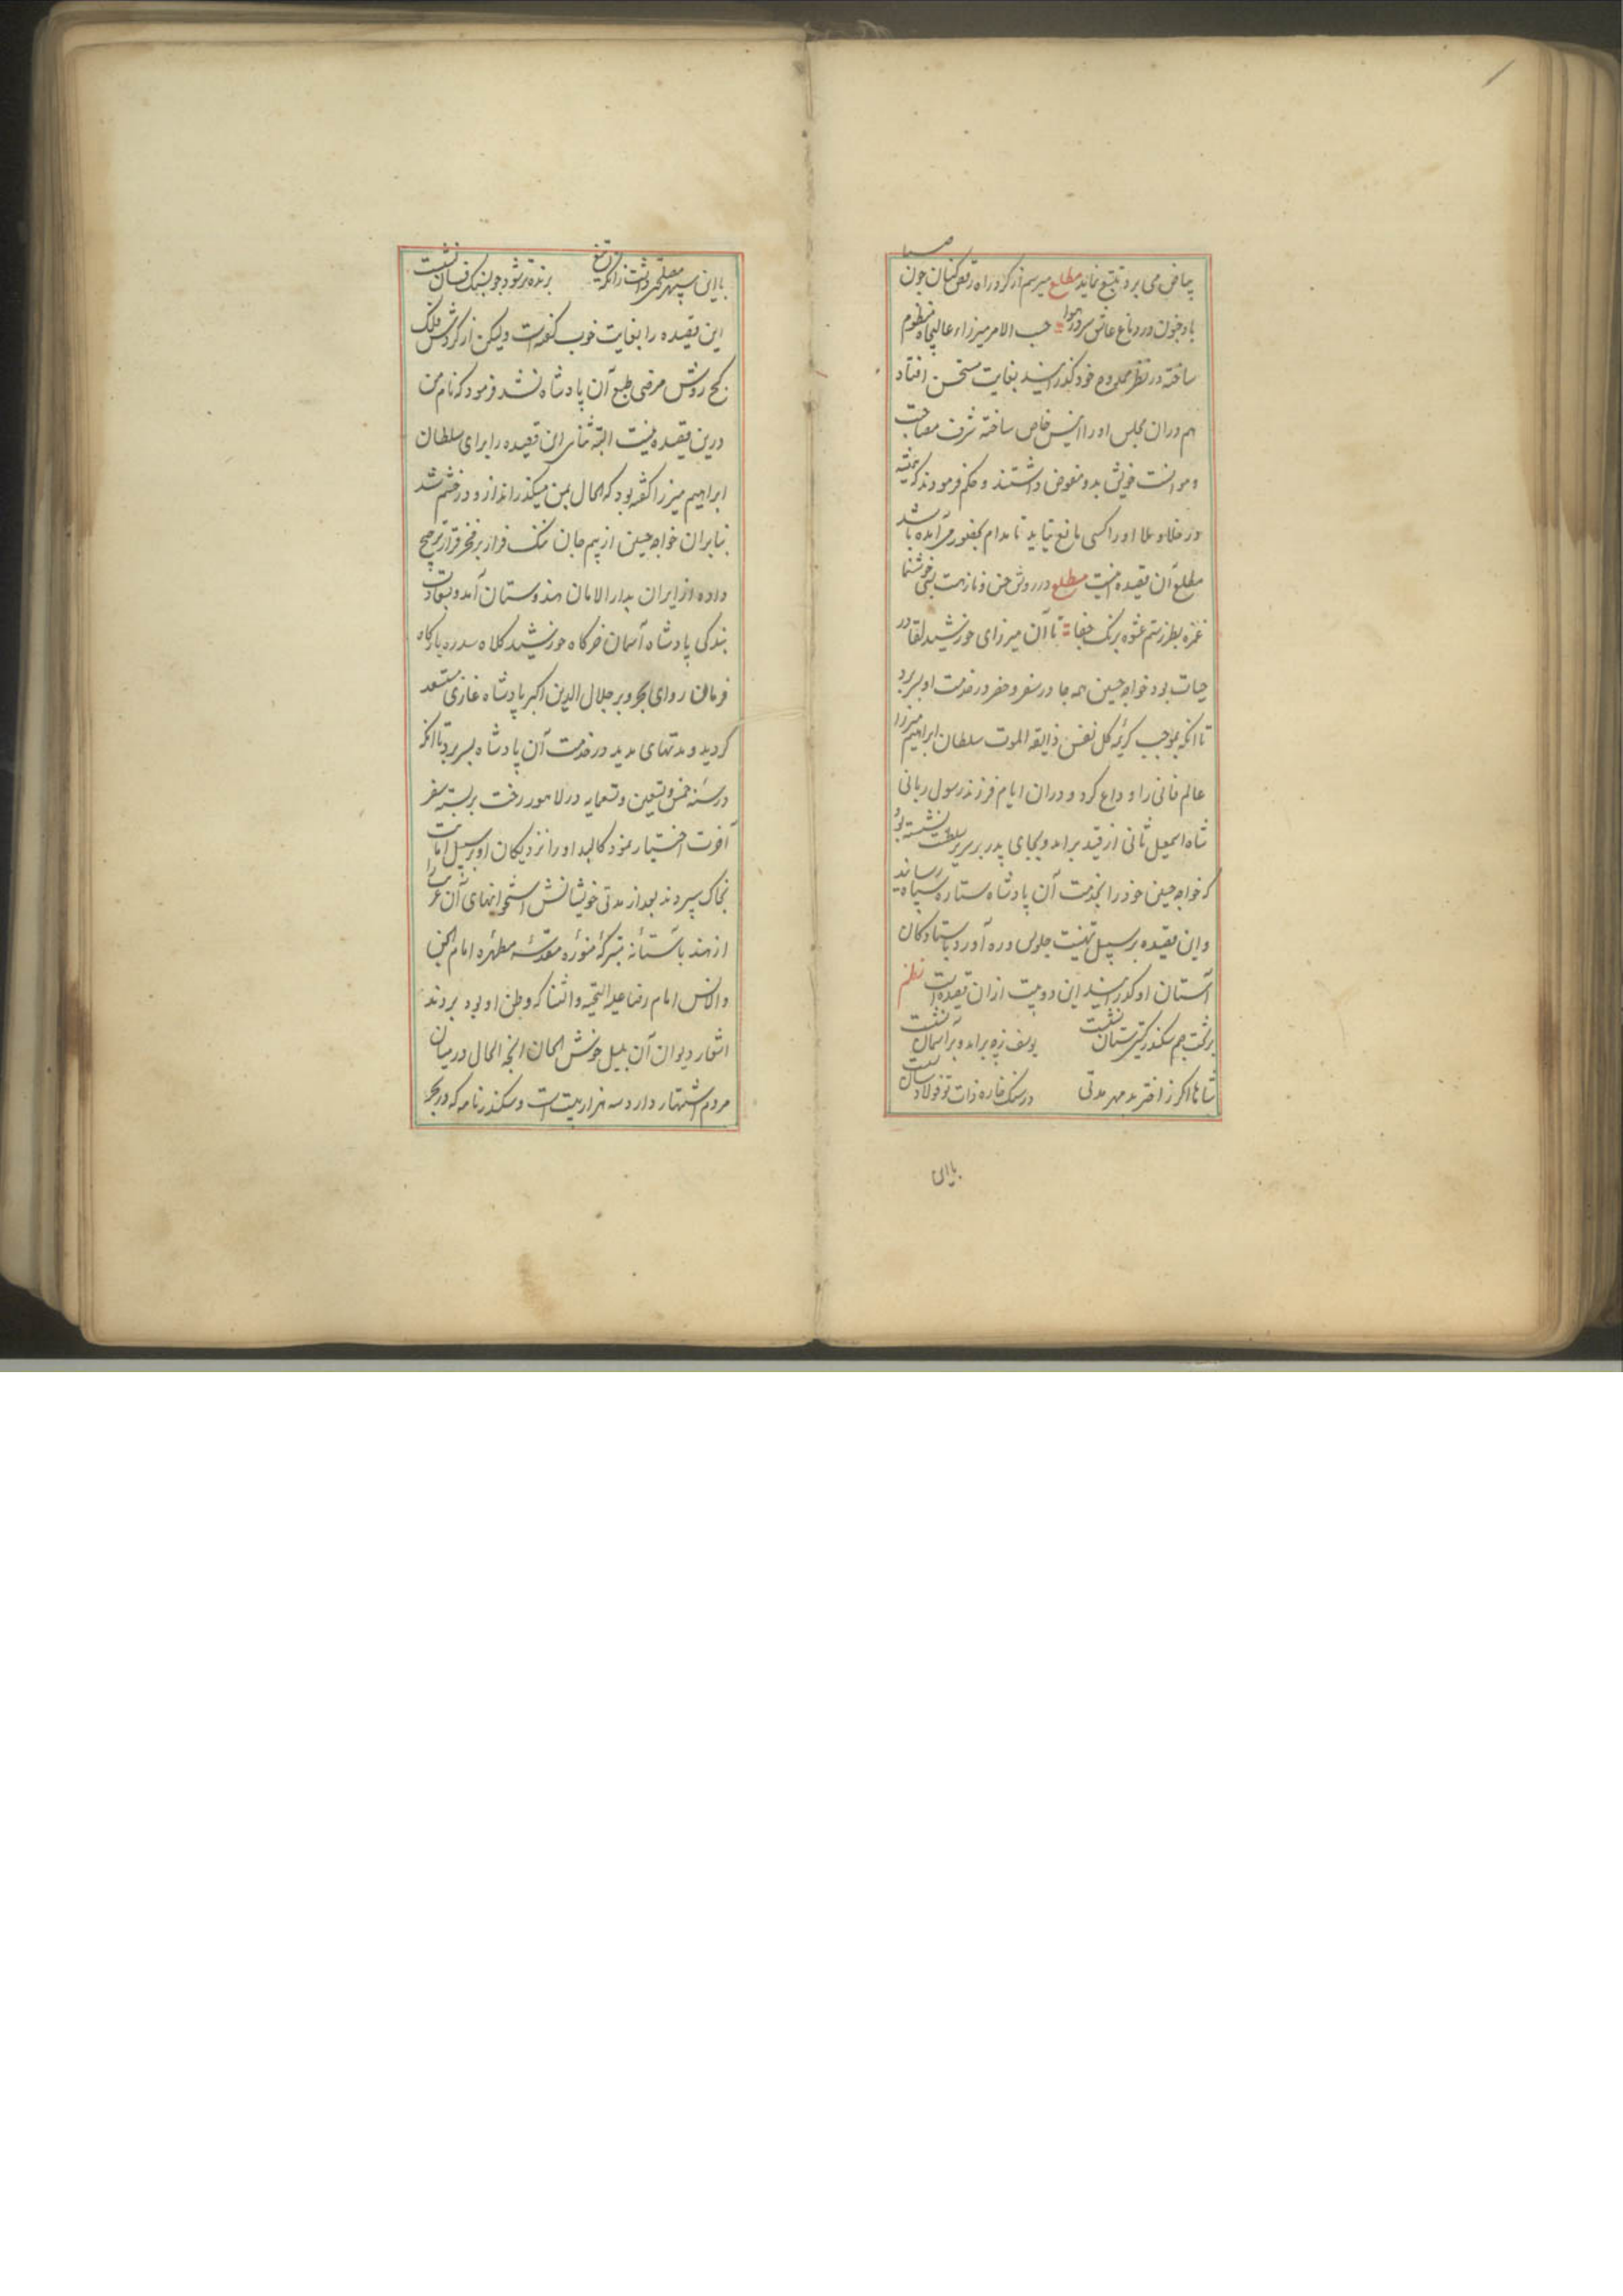 بیاض می برد تتبع نماید مطلع میرسم از گرد راه رقص کنان چون صبا
باد جنون در دماغ عاشق سر در هوا حسب الامر میرزاء عالیجاه منظوم
ساخته در نظر ممدوح خود گذرانید بغایت مستحسن افتاد
هم دران مجلس او را انیس خاص ساخته شرف مصاحبت
و موانست خویش بدو مفوض داشتند و حکم فرمودند که همیشه
در خلا و ملا او را کسی مانع نیاید تا مدام بحضور می آمده باشد
مطلع آن قصیده اینست مطلع در روش حسن و ناز هست بسی خوشنما
غمزه بطرز ستم عشوه برنگ جفا تا آن میرزای خورشید لقا در
حیات بود خواجه حسین همه جا در سفر و حضر در خدمت او بسر برد
تا انکه بموجب کریمه کل نفس ذایقة الموت سلطان ابراهیم میرزا
عالم فانی را وداع کرد و دران ایام فرزند رسول ربانی
شاه اسمعیل ثانی از قید برامد و بجای پدر بر سریر سلطنت نشسته بود
که خواجه حسین خود را بخدمت آن پادشاه ستاره سپاه رسانید
و این قصیده بر سبیل تهنیت جلوس و ره آورد باستادکان
آستان او گذرانید این دو بیت ازان قصیده است نظم
بر تخت جم سکندر گیتی ستان نشست یوسف ز چه برامد و بر آسمان نشست
شاها اگر ز اختر بد مهر مدتی در سنگ خاره ذات تو فولاد سان نشست
با این
با این سپهر مصلحتی داشت زانکه تیغ برنده تر شود چو بسنگ فسان نشست
این قصیده را بغایت خوب گفته است ولیکن از گردش فلک
کج روش مرضی طبع آن پادشاه نشد فرمود که نام من
درین قصیده نیست البته ثنای این قصیده را برای سلطان
ابراهیم میرزا گفته بود که الحال بمن میگذراند ازو در خشم شد
بنابران خواجه حسین از بیم جان ننگ فرار بر فخر قرار ترجیح
داده از ایران بدار الامان هندوستان آمد و بسعادت
بندگی پادشاه آسمان خرگاه خورشید کلاه سدره بارگاه
فرمان روای بحر و بر جلال الدین اکبر پادشاه غازی مستسعد
گردید و مدتهای مدید در خدمت آن پادشاه بسر برد تا انکه
در سنه خمس و تسعین و تسعمایه در لاهور رخت بر بسته سفر
آخرت اختیار نمود کالبد او را نزدیکان او بر سبیل امانت
بخاک سپردند بعد از مدتی خویشانش استخوانهای آن عزیز را
از هند باستانه متبرکه منوره مقدسه مطهره امام الجن
والانس امام رضا علیه التحیه و الثنا که وطن او بود بردند
اشعار دیوان آن بلبل خوش الحان انچه الحال در میان
مردم اشتهار دارد سه هزار بیت است و سکندر نامه که در بحر